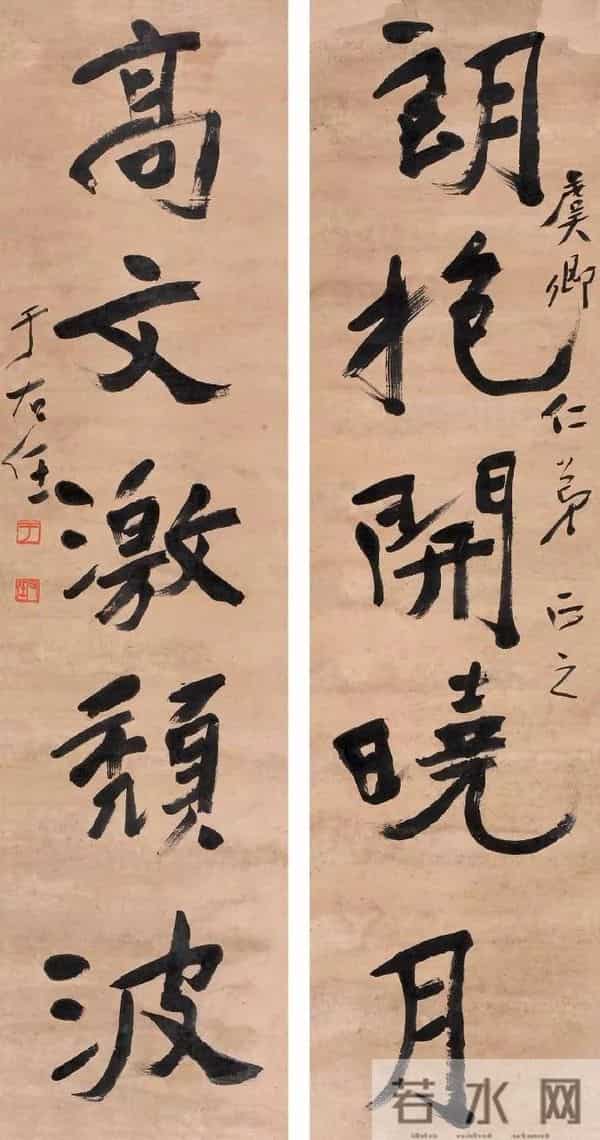 朗抱開曉月
虞卿仁弟正之
高文激頹波
于右任
若水网